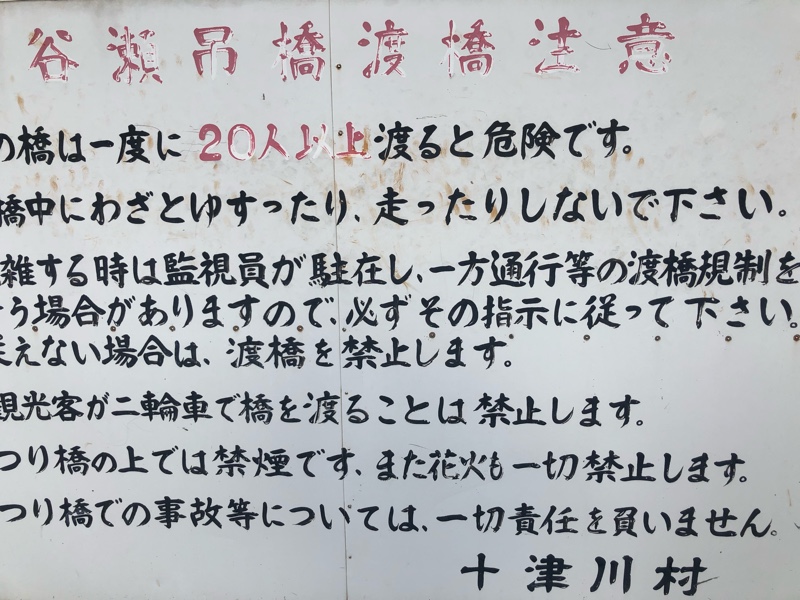 谷瀬吊橋渡橋注意
の橋は一度に20人以上渡ると危険です。
橋中にわざとゆすったり、走ったりしないで下さい。
雑する時は監視員が駐在し、一方通行等の渡橋規制を
う場合がありますので、必ずその指示に従って下さい。
えない場合は、渡橋を禁止します。
観光客が二輪車で橋を渡ることは禁止します。
つり橋の上では禁煙です、また花火も一切禁止します。
つり橋での事故等については、一切責任を負いません。
十津川村